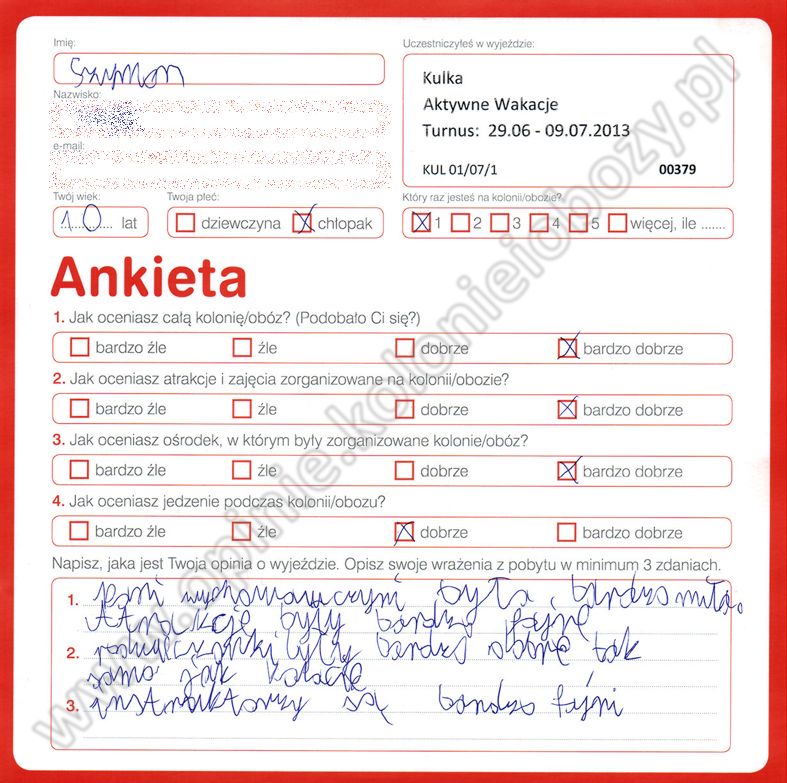 Imię:
Szymon
Uczestniczyłeś w wyjeździe:
Kulka
Aktywne Wakacje
Turnus: 29.06 - 09.07.2013
KUL 01/07/1 00379
Nazwisko:
e-mail:
Twój wiek:
10 lat
Twoja płeć:
dziewczyna chłopak
Który raz jesteś na kolonii/obozie?
1 2 3 4 5 więcej, ile .......
Ankieta
1. Jak oceniasz całą kolonię/obóz? (Podobało Ci się?)
bardzo źle źle dobrze bardzo dobrze
2. Jak oceniasz atrakcje i zajęcia zorganizowane na kolonii/obozie?
bardzo źle źle dobrze bardzo dobrze
3. Jak oceniasz ośrodek, w którym były zorganizowane kolonie/obóz?
bardzo źle źle dobrze bardzo dobrze
4. Jak oceniasz jedzenie podczas kolonii/obozu?
bardzo źle źle dobrze bardzo dobrze
Napisz, jaka jest Twoja opinia o wyjeździe. Opisz swoje wrażenia z pobytu w minimum 3 zdaniach.
1. była bardzo miła.
Atrakcje były bardzo fajne
2. były bardzo dobre tak
samo jak kolacje
3. instruktorzy są bardzo fajni
www.opinie.kolonieiobozy.pl